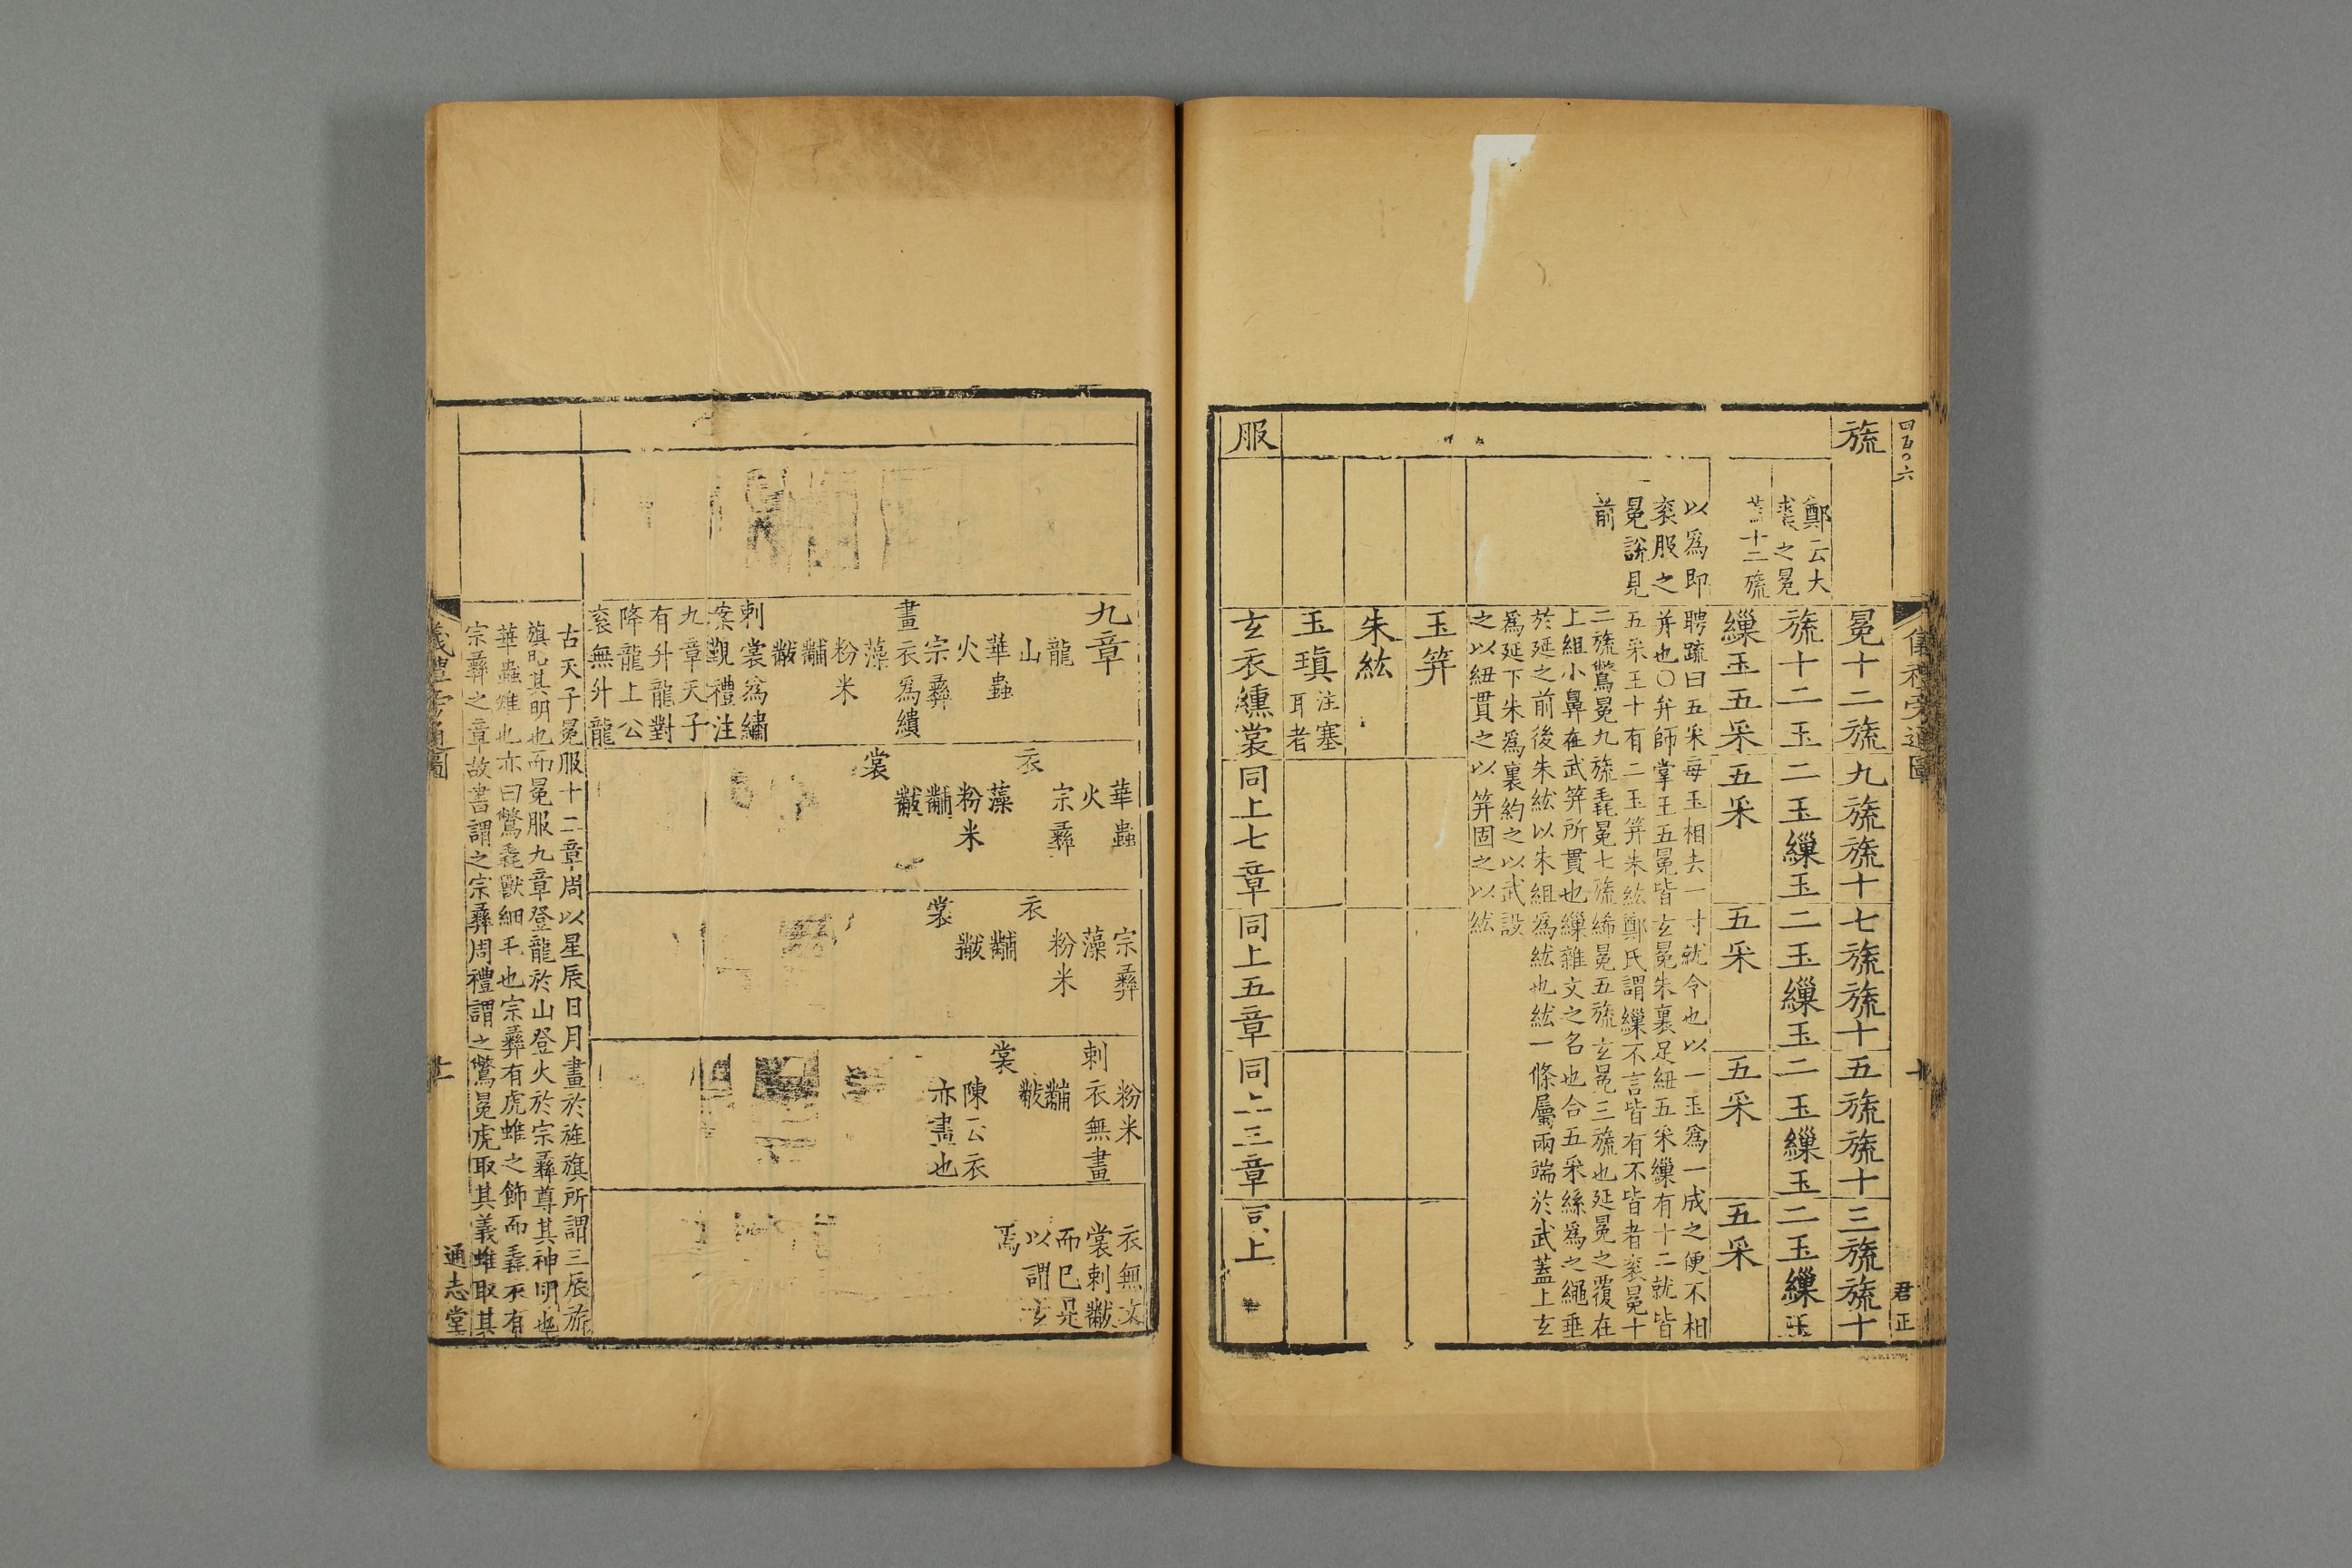 四百〇六
儀禮旁通圖
十
君正
旒
鄭云大
裘之冕
蓋十二旒
冕十二旒
九旒旒十
七旒旒十
五旒旒十
三旒旒十
旒十二玉
二玉繅玉
二玉繅玉
二玉繅玉
二玉繅玉
繅玉五采
五采
五采
五采
五采
以爲即
衮服之
冕說見
前
聘疏曰五采每玉相去一寸就令也以一玉爲一成之使不相
并也〇弁師掌王五冕皆玄冕朱裏延紐五采繅有十二就皆
五采玉十有二玉笄朱紘鄭氏謂繅不言皆有不皆者衮冕十
二旒鷩冕九旒毳冕七旒絺冕五旒玄冕三旒也延冕之覆在
上組小鼻在武笄所貫也繅雜文之名也合五采絲爲之繩垂
於延之前後朱紘以朱組爲紘也紘一條屬兩端於武蓋上玄
爲延下朱爲裏約之以武設
之以紐貫之以笄固之以紘
玉笄
朱紘
玉瑱 注塞
耳者
服
玄衣纁裳
同上七章
同上五章
同上三章
同上
九章
龍
山
華蟲
火
宗彝
畫衣爲繢
藻
粉米
黼
黻
刺裳爲繡
案觀禮注
九章天子
有升龍對
降龍上公
衮無升龍
華蟲
火
宗彝
衣
藻
粉米
黼
黻
裳
宗彝
藻
粉米
衣
黼
黻
裳
粉米
刺衣無畫
黼
黻
裳
陳云衣
亦畫也
衣無文
裳刺黻
而已是
以謂玄
焉
古天子冕服十二章周以星辰日月畫於旌旗所謂三辰旂
旗昭其明也而冕服九章登龍於山登火於宗彝尊其神明也
華蟲雉也亦曰鷩毳獸細毛也宗彝有虎蜼之飾而毳衣有
宗彝之章故書謂之宗彝周禮謂之鷩冕虎取其義蜼取其
儀禮旁通圖
十一
通志堂